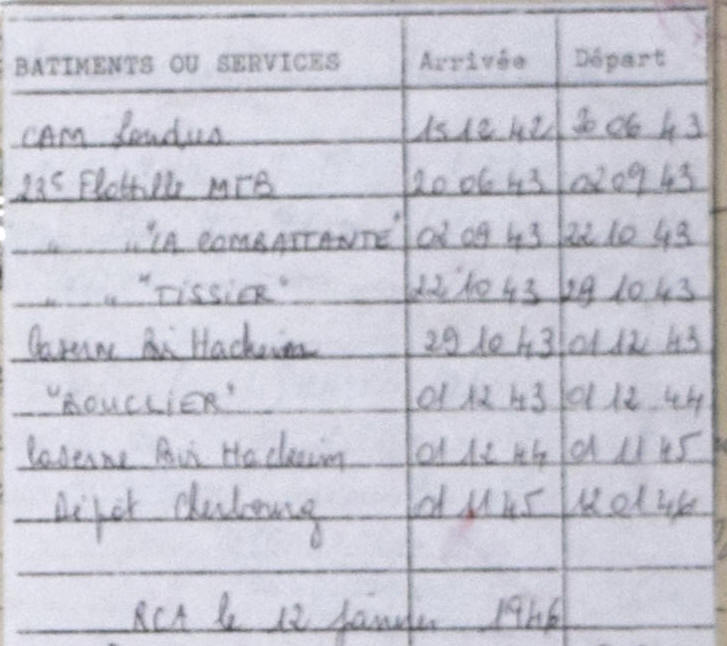 BATIMENTS OU SERVICES Arrivée Départ
CAM Londres 15 12 42 20 06 43
23e Flottille MTB 20 06 43 02 09 43
" " "LA COMBATTANTE" 02 09 43 22 10 43
" " "TISSIER" 22 10 43 29 10 43
Caserne Bir Hacheim 29 10 43 01 12 43
"BOUCLIER" 01 12 43 01 12 44
Caserne Bir Hacheim 01 12 44 01 11 45
Dépôt Cherbourg 01 11 45 12 01 46
RCA le 12 janvier 1946